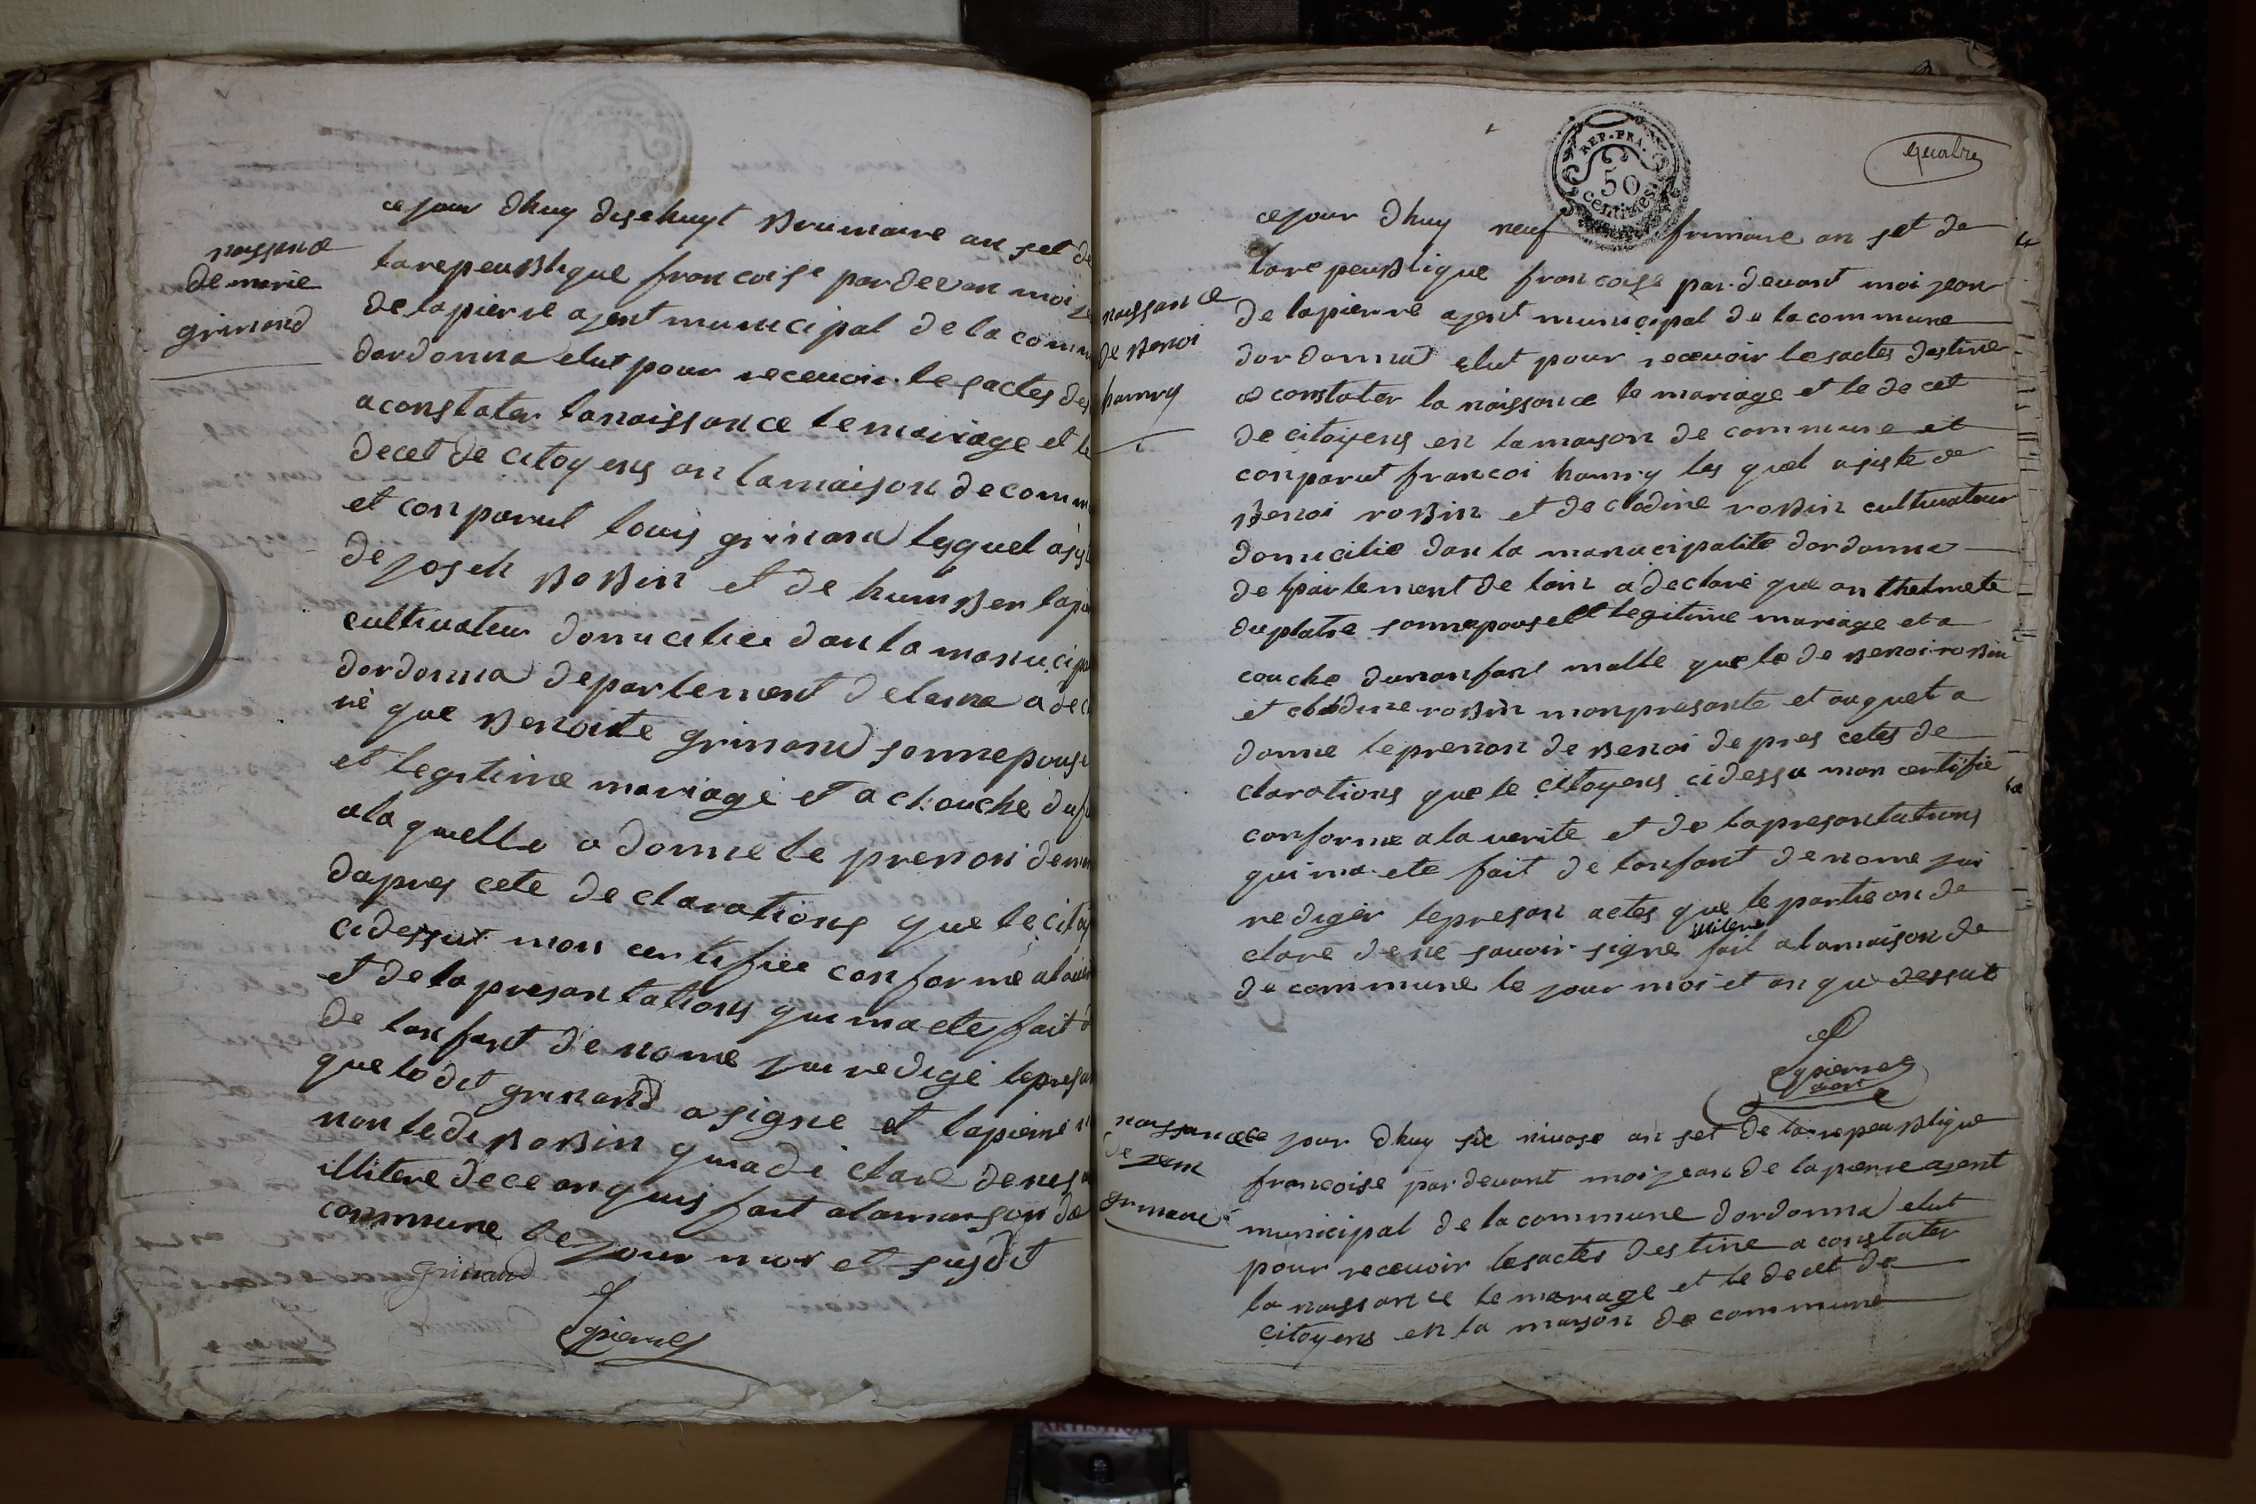 naissance
de marie
grinand
ce jour dhuy disehuyt Brumaire an set de
la repeublique francoise par devan moi
de lapierre agent municipal de la comm
dordonna elut pour recevoir les actes des
a constater la naissance le mariage et le
decet de citoyens an la maison de comm
et conparut louis grinand lesquel asiste
de joseh BoBin et de humBer lapi
cultivateur domicilie dan la manicipa
dordonna departement de lain a decl
ré que Benoite grinand sonnepouse
et legitime mariage et a chouche du
a la quelle a donne le prenon de m
dapres cete declarations que le citoy
cidessut mon certifiée conforme a la veri
et de la presantations qui ma ete fait d
de lanfant denome jai redige le presan
que le dit grinand a signe et lapierre
non le di BoBin qui a di clare de ne s
illitere de ce anquis fait a la maison de
commune le jour moi et susdit
grinand
lapierre
REP. FRA.
50
centimes
quatre
naissance
de Benoi
hanry
ce jour dhuy neuf frimaire an set de
la repeublique francoise par devant moi jean
de lapierre agent municipal de la commune
dordonna elut pour recevoir les actes destine
a constater la naissance le mariage et le de cet
de citoyens en la maison de commune et
conparut francoi hanry les quel asiste de
Benoi roBin et de clodine roBin cultivateur
domicilie dan la manicipalite dordonna
de partement de lain a declaré que an thelmete
duplatre sonnepouse et legitime mariage et a
couche dunanfant malle que le de Benoi roBin
et clodine roBin mon presante et auquel a
donne le prenon de Benoi de pres cetes de
clarations que le citoyens cidessu mon certifie
conforme a la verite et de la presantations
qui ma ete fait de lanfant denome jai
rediger le presan actes que le partie on de
clare de ne savoir signe illitere fait a la maison de
de commune le jour moi et an que dessut
lapierre
agent
naissance
de jean
grinand
ce jour dhuy sic nivose an set de la repeublique
francoise par devant moi jean de lapierre agent
municipal de la commune dordonna elut
pour recevoir les actes destine a constater
la naissance le mariage et le decet de
citoyens en la maison de commune